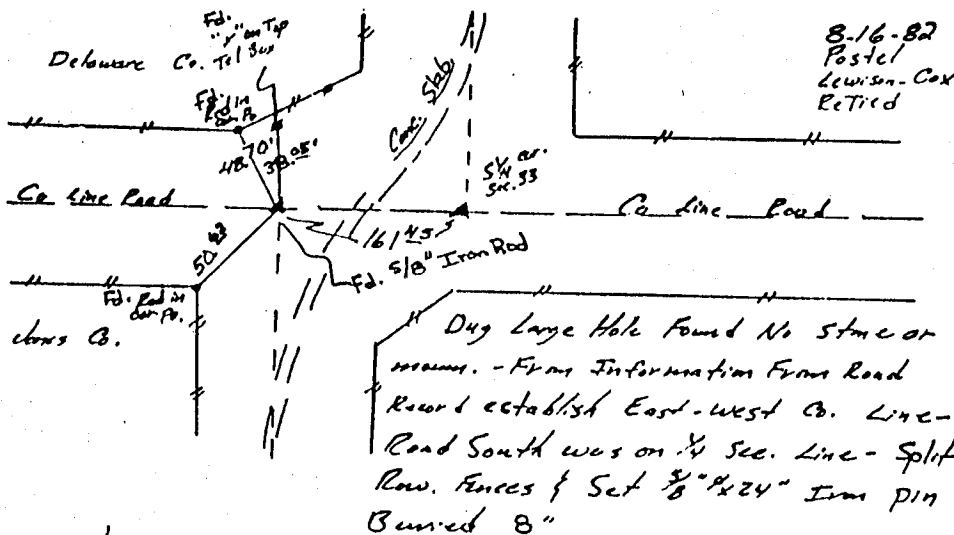 8-16-82
Postel
Lewison-Cox
ReTied
Fd.
"x" on Top
Tel Box
Delaware Co.
Fd.
Rod in
cor Po
48.70'
38.05'
Conc. Slab
S 1/4 cor.
Sec. 33
Co Line Road
Co Line Road
161.45'
50.43
Fd. 5/8" Iron Rod
Fd. Rod in
cor Po.
Co.
Dug Large Hole Found No Stone or
monm. - From Information From Road
Record establish East-West Co. Line-
Road South was on 1/4 Sec. Line - Split
Row. Fences & Set 5/8" x 24" Iron Pin
Burried 8"